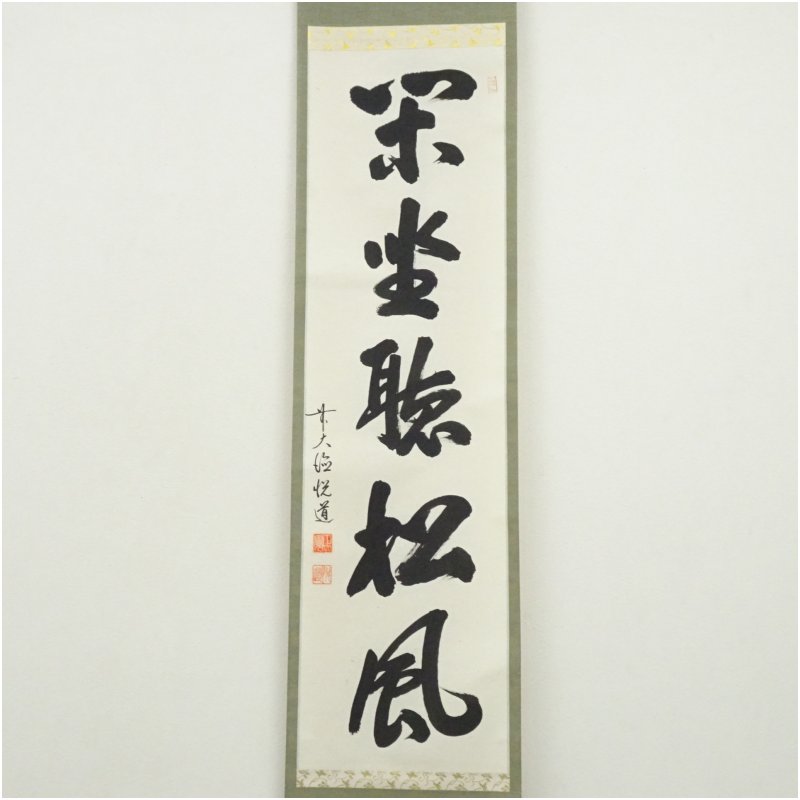 閑坐聴松風
前大徳悦道